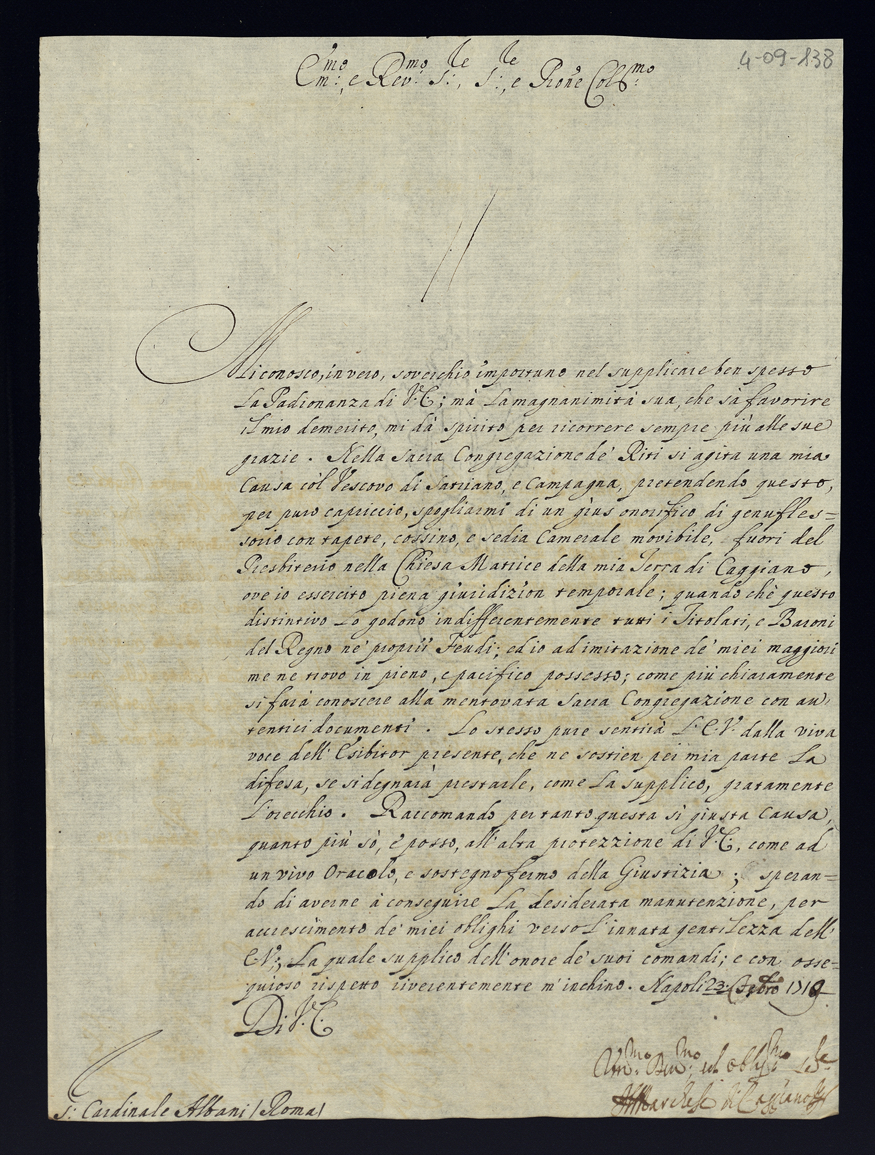 4-09-138
Em.mo e Rev.mo S.re, S.re, e Prone Col.mo
Mi conosco, in vero, soverchio importuno nel supplicare ben spesso
la Padronanza di V. E.; mà la magnanimità sua, che sà favorire
il mio demerito, mi dà spirito per ricorrere sempre più alle sue
grazie. Nella Sacra Congregazione de' Riti si agita una mia
Causa col Vescovo di Satriano, e Campagna, pretendendo questo,
per puro capriccio, spogliarmi di un gius onorifico di genufles=
sorio con tapete, cossino, e sedia Camerale movibile, fuori del
Presbiterio nella Chiesa Matrice della mia Terra di Caggiano,
ove io essercito piena giuridizion temporale; quando chè questo
distintivo lo godono indifferentemente tutti i Titolati, e Baroni
del Regno ne' proprij Feudi; ed io ad imitazione de' miei maggiori
me ne trovo in pieno, e pacifico possesso; come più chiaramente
si farà conoscere alla mentovata Sacra Congregazione con au=
tentici documenti. Lo stesso pure sentirà l'E. V. dalla viva
voce dell'Esibitor presente, che ne sostien per mia parte la
difesa, se si degnarà prestarle, come la supplico, gratamente
l'orecchio. Raccomando per tanto questa sì giusta Causa,
quanto più sò, e posso, all'alta protezzione di V. E., come ad
un vivo Oracolo, e sostegno fermo della Giustizia; speran=
do di averne à conseguire la desiderata manutenzione, per
accrescimento de' miei oblighi verso l'innata gentilezza dell'
E. V.; La quale supplico dell'onore de' suoi comandi; e con osse=
quioso rispetto riverentemente m'inchino. Napoli 23
Di V. E.
ed oblig.mo
Marchese di Caggiano
S.r Cardinale Albani (Roma)